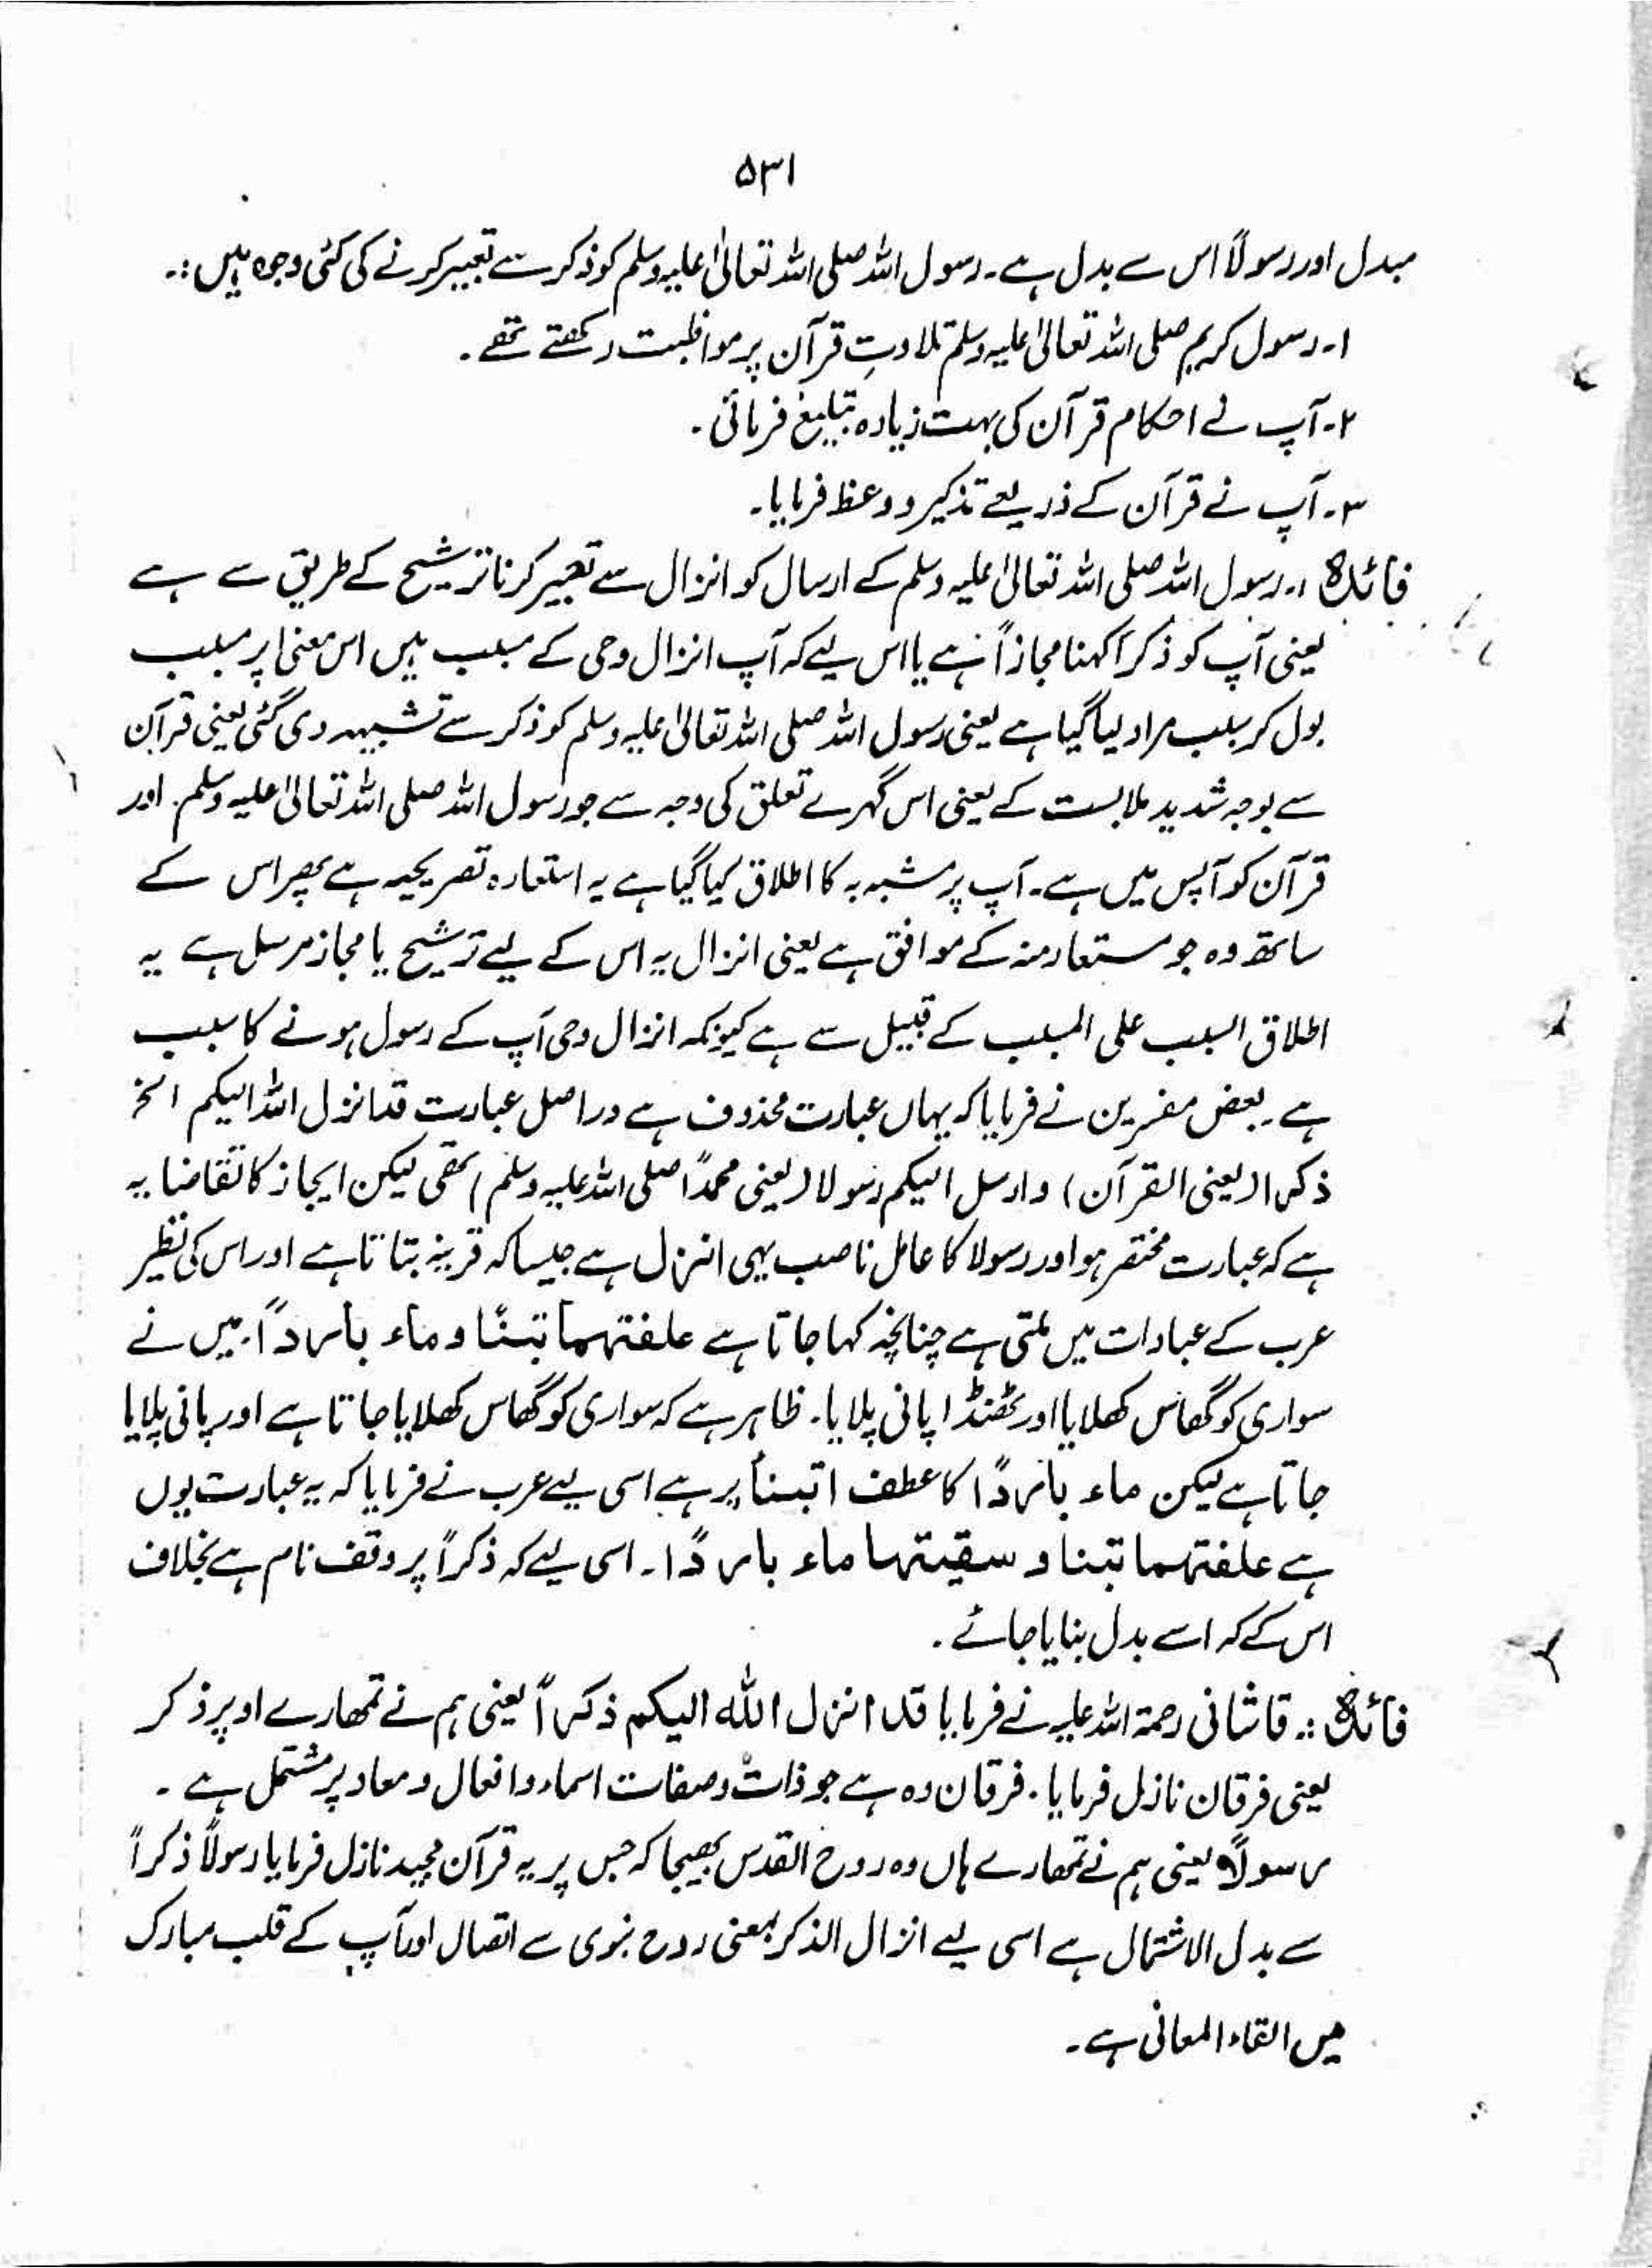 ۵۳۱
مبدل اور رسولاً اس سے بدل ہے۔ رسول اللہ صلی اللہ تعالیٰ علیہ وسلم کو ذکر سے تعبیر کرنے کی کئی وجوہ ہیں :۔
۱۔ رسول کریم صلی اللہ تعالیٰ علیہ وسلم تلاوتِ قرآن پر مواظبت رکھتے تھے۔
۲۔ آپ نے احکام قرآن کی بہت زیادہ تبلیغ فرمائی۔
۳۔ آپ نے قرآن کے ذریعے تذکیر و وعظ فرمایا۔
فائدہ :۔ رسول اللہ صلی اللہ تعالیٰ علیہ وسلم کے ارسال کو انزال سے تعبیر کرنا ترشیح کے طریق سے ہے
یعنی آپ کو ذکراً کہنا مجازاً ہے یا اس لیے کہ آپ انزال وحی کے مسبب ہیں اس معنیٰ پر مسبب
بول کر سبب مراد لیا گیا ہے یعنی رسول اللہ صلی اللہ تعالیٰ علیہ وسلم کو ذکر سے تشبیہہ دی گئی یعنی قرآن
سے بوجہ شدید ملابست کے یعنی اس گہرے تعلق کی وجہ سے جو رسول اللہ صلی اللہ تعالیٰ علیہ وسلم۔ اور
قرآن کو آپس میں ہے۔ آپ پر مشبہ بہ کا اطلاق کیا گیا ہے یہ استعارہ تصریحیہ ہے پھر اس کے
ساتھ وہ جو مستعار منہ کے موافق ہے یعنی انزال یہ اس کے لیے ترشیح یا مجاز مرسل ہے یہ
اطلاق السبب علی المسبب کے قبیل سے ہے کیونکہ انزال وحی آپ کے رسول ہونے کا سبب
ہے۔ بعض مفسرین نے فرمایا کہ یہاں عبارت محذوف ہے دراصل عبارت قد انزل اللہ الیکم الخ
ذکرا (یعنی القرآن) وارسل الیکم رسولا (یعنی محمداً صلی اللہ علیہ وسلم) تھی لیکن ایجاز کا تقاضا یہ
ہے کہ عبارت مختصر ہو اور رسولا کا عامل ناصب یہی انزل ہے جیسا کہ قرینہ بتاتا ہے اور اس کی نظیر
عرب کے عبادات میں ملتی ہے چنانچہ کہا جاتا ہے علفتہما تبنًا و ماء بارداً۔ میں نے
سواری کو گھاس کھلایا اور ٹھنڈا پانی پلایا۔ ظاہر ہے کہ سواری کو گھاس کھلایا جاتا ہے اور پانی پلایا
جاتا ہے لیکن ماء باردًا کا عطف اتبنأ پر ہے اسی لیے عرب نے فرمایا کہ یہ عبارت یوں
ہے علفتہما تبنا و سقیتہا ماء باردًا۔ اسی لیے کہ ذکراً پر وقف نام ہے بخلاف
اس کے کہ اسے بدل بنایا جائے۔
فائدہ :۔ قاشانی رحمۃ اللہ علیہ نے فرمایا قد انزل اللہ الیکم ذکراً یعنی ہم نے تمھارے اوپر ذکر
یعنی فرقان نازل فرمایا۔ فرقان وہ ہے جو ذات و صفات اسماء و افعال و معاد پر مشتمل ہے۔
رسولاً یعنی ہم نے تمھارے ہاں وہ روح القدس بھیجا کہ جس پر یہ قرآن مجید نازل فرمایا رسولاً ذکراً
سے بدل الاشتمال ہے اسی لیے انزال الذکر بمعنی روح نبوی سے اتصال اور آپ کے قلب مبارک
میں القاء المعانی ہے۔